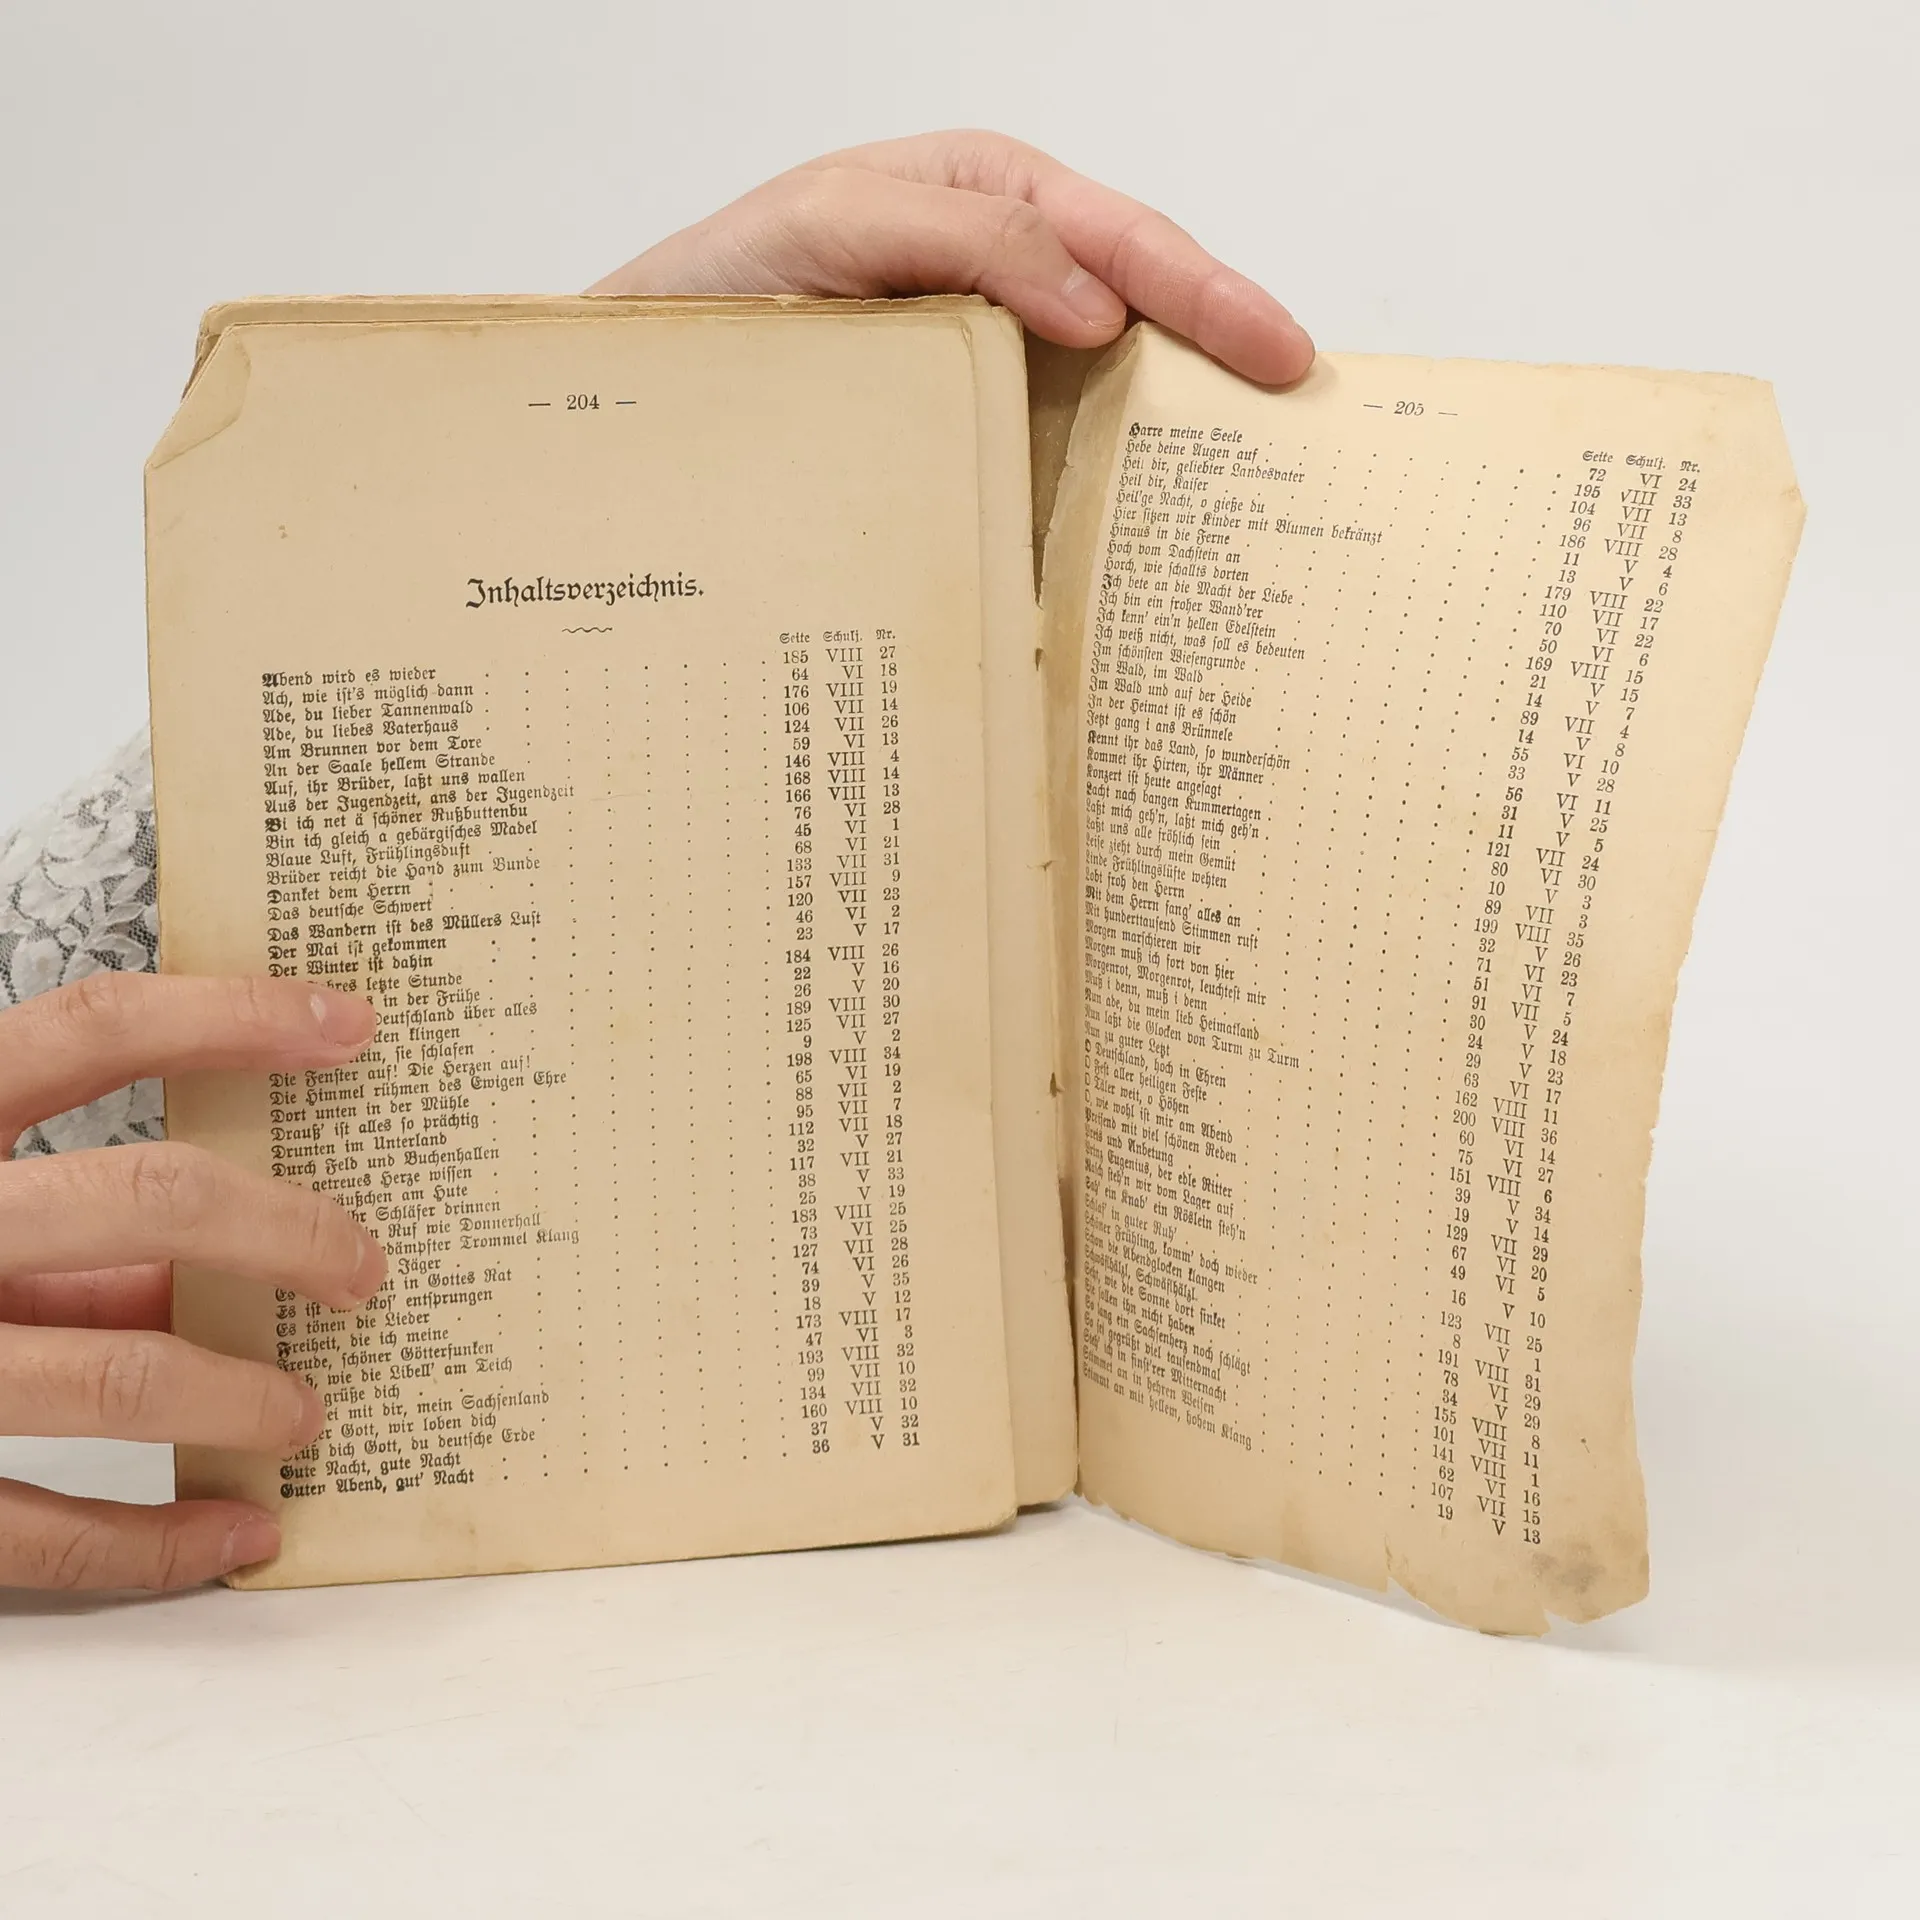 — 204 —
Inhaltsverzeichnis.
Seite Schulj. Nr.
Abend wird es wieder 185 VIII 27
Ach, wie ist's möglich dann 64 VI 18
Ade, du lieber Tannenwald 176 VIII 19
Ade, du liebes Vaterhaus 106 VII 14
Am Brunnen vor dem Tore 124 VII 26
An der Saale hellem Strande 59 VI 13
Auf, ihr Brüder, laßt uns wallen 146 VIII 4
Aus der Jugendzeit, aus der Jugendzeit 168 VIII 14
Bi ich net ä schöner Rußbuttenbu 166 VIII 13
Bin ich gleich a gebärgisches Madel 76 VI 28
Blaue Luft, Frühlingsduft 45 VI 1
Brüder reicht die Hand zum Bunde 68 VI 21
Danket dem Herrn 133 VII 31
Das deutsche Schwert 157 VIII 9
Das Wandern ist des Müllers Lust 120 VII 23
Der Mai ist gekommen 46 VI 2
Der Winter ist dahin 23 V 17
letzte Stunde 184 VIII 26
in der Frühe 22 V 16
Deutschland über alles 26 V 20
klingen 189 VIII 30
sie schlafen 125 VII 27
Die Fenster auf! Die Herzen auf! 9 V 2
Die Himmel rühmen des Ewigen Ehre 198 VIII 34
Dort unten in der Mühle 65 VI 19
Drauß' ist alles so prächtig 88 VII 2
Drunten im Unterland 95 VII 7
Durch Feld und Buchenhallen 112 VII 18
getreues Herze wissen 32 V 27
am Hute 117 VII 21
Schläfer drinnen 38 V 33
Ruf wie Donnerhall 25 V 19
gedämpfter Trommel Klang 183 VIII 25
Jäger 73 VI 25
in Gottes Rat 127 VII 28
Es ist ein Ros' entsprungen 74 VI 26
Es tönen die Lieder 39 V 35
Freiheit, die ich meine 18 V 12
Freude, schöner Götterfunken 173 VIII 17
wie die Libell' am Teich 47 VI 3
grüße dich 193 VIII 32
mit dir, mein Sachsenland 99 VII 10
Gott, wir loben dich 134 VII 32
Grüß dich Gott, du deutsche Erde 160 VIII 10
Gute Nacht, gute Nacht 37 V 32
Guten Abend, gut' Nacht 36 V 31
— 205 —
Seite Schulj. Nr.
Harre meine Seele 72 VI 24
Hebe deine Augen auf 195 VIII 33
Heil dir, geliebter Landesvater 104 VII 13
Heil dir, Kaiser 96 VII 8
Heil'ge Nacht, o gieße du 186 VIII 28
Hier sitzen wir Kinder mit Blumen bekränzt 11 V 4
Hinaus in die Ferne 13 V 6
Hoch vom Dachstein an 179 VIII 22
Horch, wie schallts dorten 110 VII 17
Ich bete an die Macht der Liebe 70 VI 22
Ich bin ein froher Wand'rer 50 VI 6
Ich kenn' ein'n hellen Edelstein 169 VIII 15
Ich weiß nicht, was soll es bedeuten 21 V 15
Im schönsten Wiesengrunde 14 V 7
Im Wald, im Wald 89 VII 4
Im Wald und auf der Heide 14 V 8
In der Heimat ist es schön 55 VI 10
Jetzt gang i ans Brünnele 33 V 28
Kennt ihr das Land, so wunderschön 56 VI 11
Kommet ihr Hirten, ihr Männer 31 V 25
Konzert ist heute angesagt 11 V 5
Lacht nach bangen Kummertagen 121 VII 24
Laßt mich geh'n, laßt mich geh'n 80 VI 30
Laßt uns alle fröhlich sein 10 V 3
Leise zieht durch mein Gemüt 89 VII 3
Linde Frühlingslüfte wehten 199 VIII 35
Lobt froh den Herrn 32 V 26
Mit dem Herrn fang' alles an 71 VI 23
Mit hunderttausend Stimmen ruft 51 VI 7
Morgen marschieren wir 91 VII 5
Morgen muß ich fort von hier 30 V 24
Morgenrot, Morgenrot, leuchtest mir 24 V 18
Muß i denn, muß i denn 29 V 23
Nun ade, du mein lieb Heimatland 63 VI 17
Nun laßt die Glocken von Turm zu Turm 162 VIII 11
Nun zu guter Letzt 200 VIII 36
O Deutschland, hoch in Ehren 60 VI 14
O Fest aller heiligen Feste 75 VI 27
O Täler weit, o Höhen 151 VIII 6
O, wie wohl ist mir am Abend 39 V 34
Preisend mit viel schönen Reden 19 V 14
Preis und Anbetung 129 VII 29
Prinz Eugenius, der edle Ritter 67 VI 20
Rasch steh'n wir vom Lager auf 49 VI 5
Sah' ein Knab' ein Röslein steh'n 16 V 10
Schlaf' in guter Ruh' 123 VII 25
Schöner Frühling, komm' doch wieder 8 V 1
Schon die Abendglocken klangen 191 VIII 31
78 VI 29
Seht, wie die Sonne dort sinket 34 V 29
Sie sollen ihn nicht haben 155 VIII 8
So lang ein Sachsenherz noch schlägt 101 VII 11
So sei gegrüßt viel tausendmal 141 VIII 1
Steh' ich in finst'rer Mitternacht 62 VI 16
Stimmet an in hehren Weisen 107 VII 15
Stimmt an mit hellem, hohem Klang 19 V 13